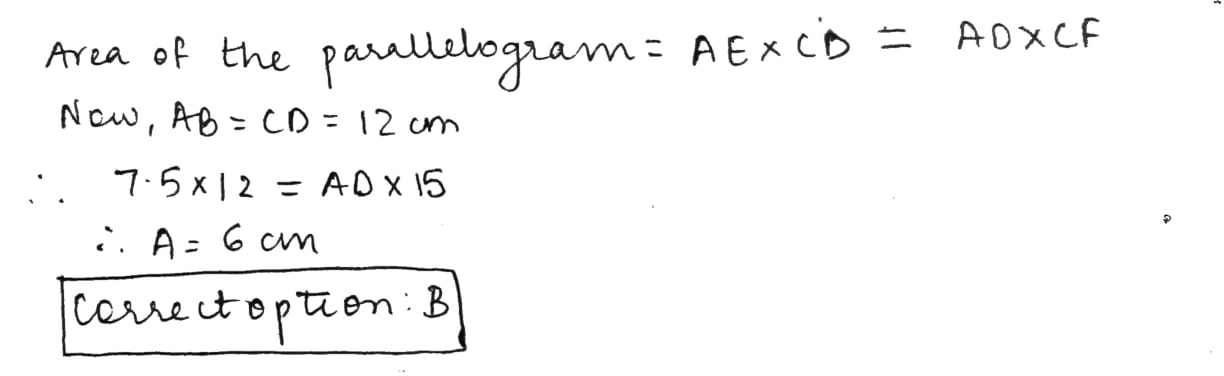 Area of the parallelogram = AE x CD = AD X CF
Now, AB = CD = 12 cm
∴ 7.5 x 12 = AD X 15
∴ A = 6 cm
Correct option: B